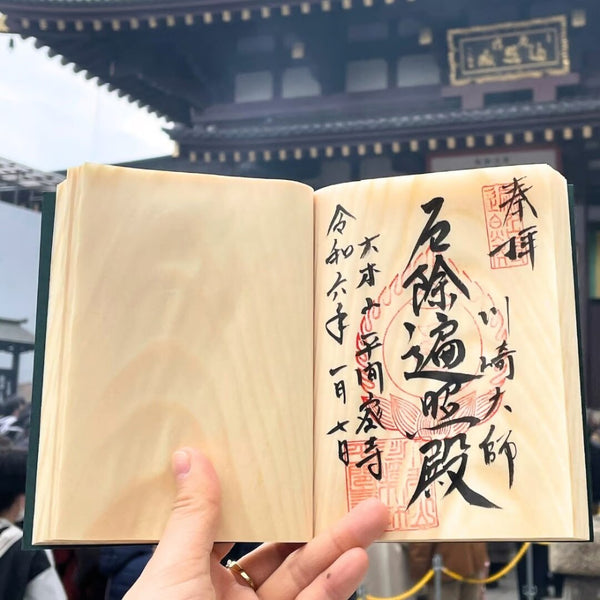 奉拝
川崎大師
厄除遍照殿
大本山平間密寺
令和六年一月七日